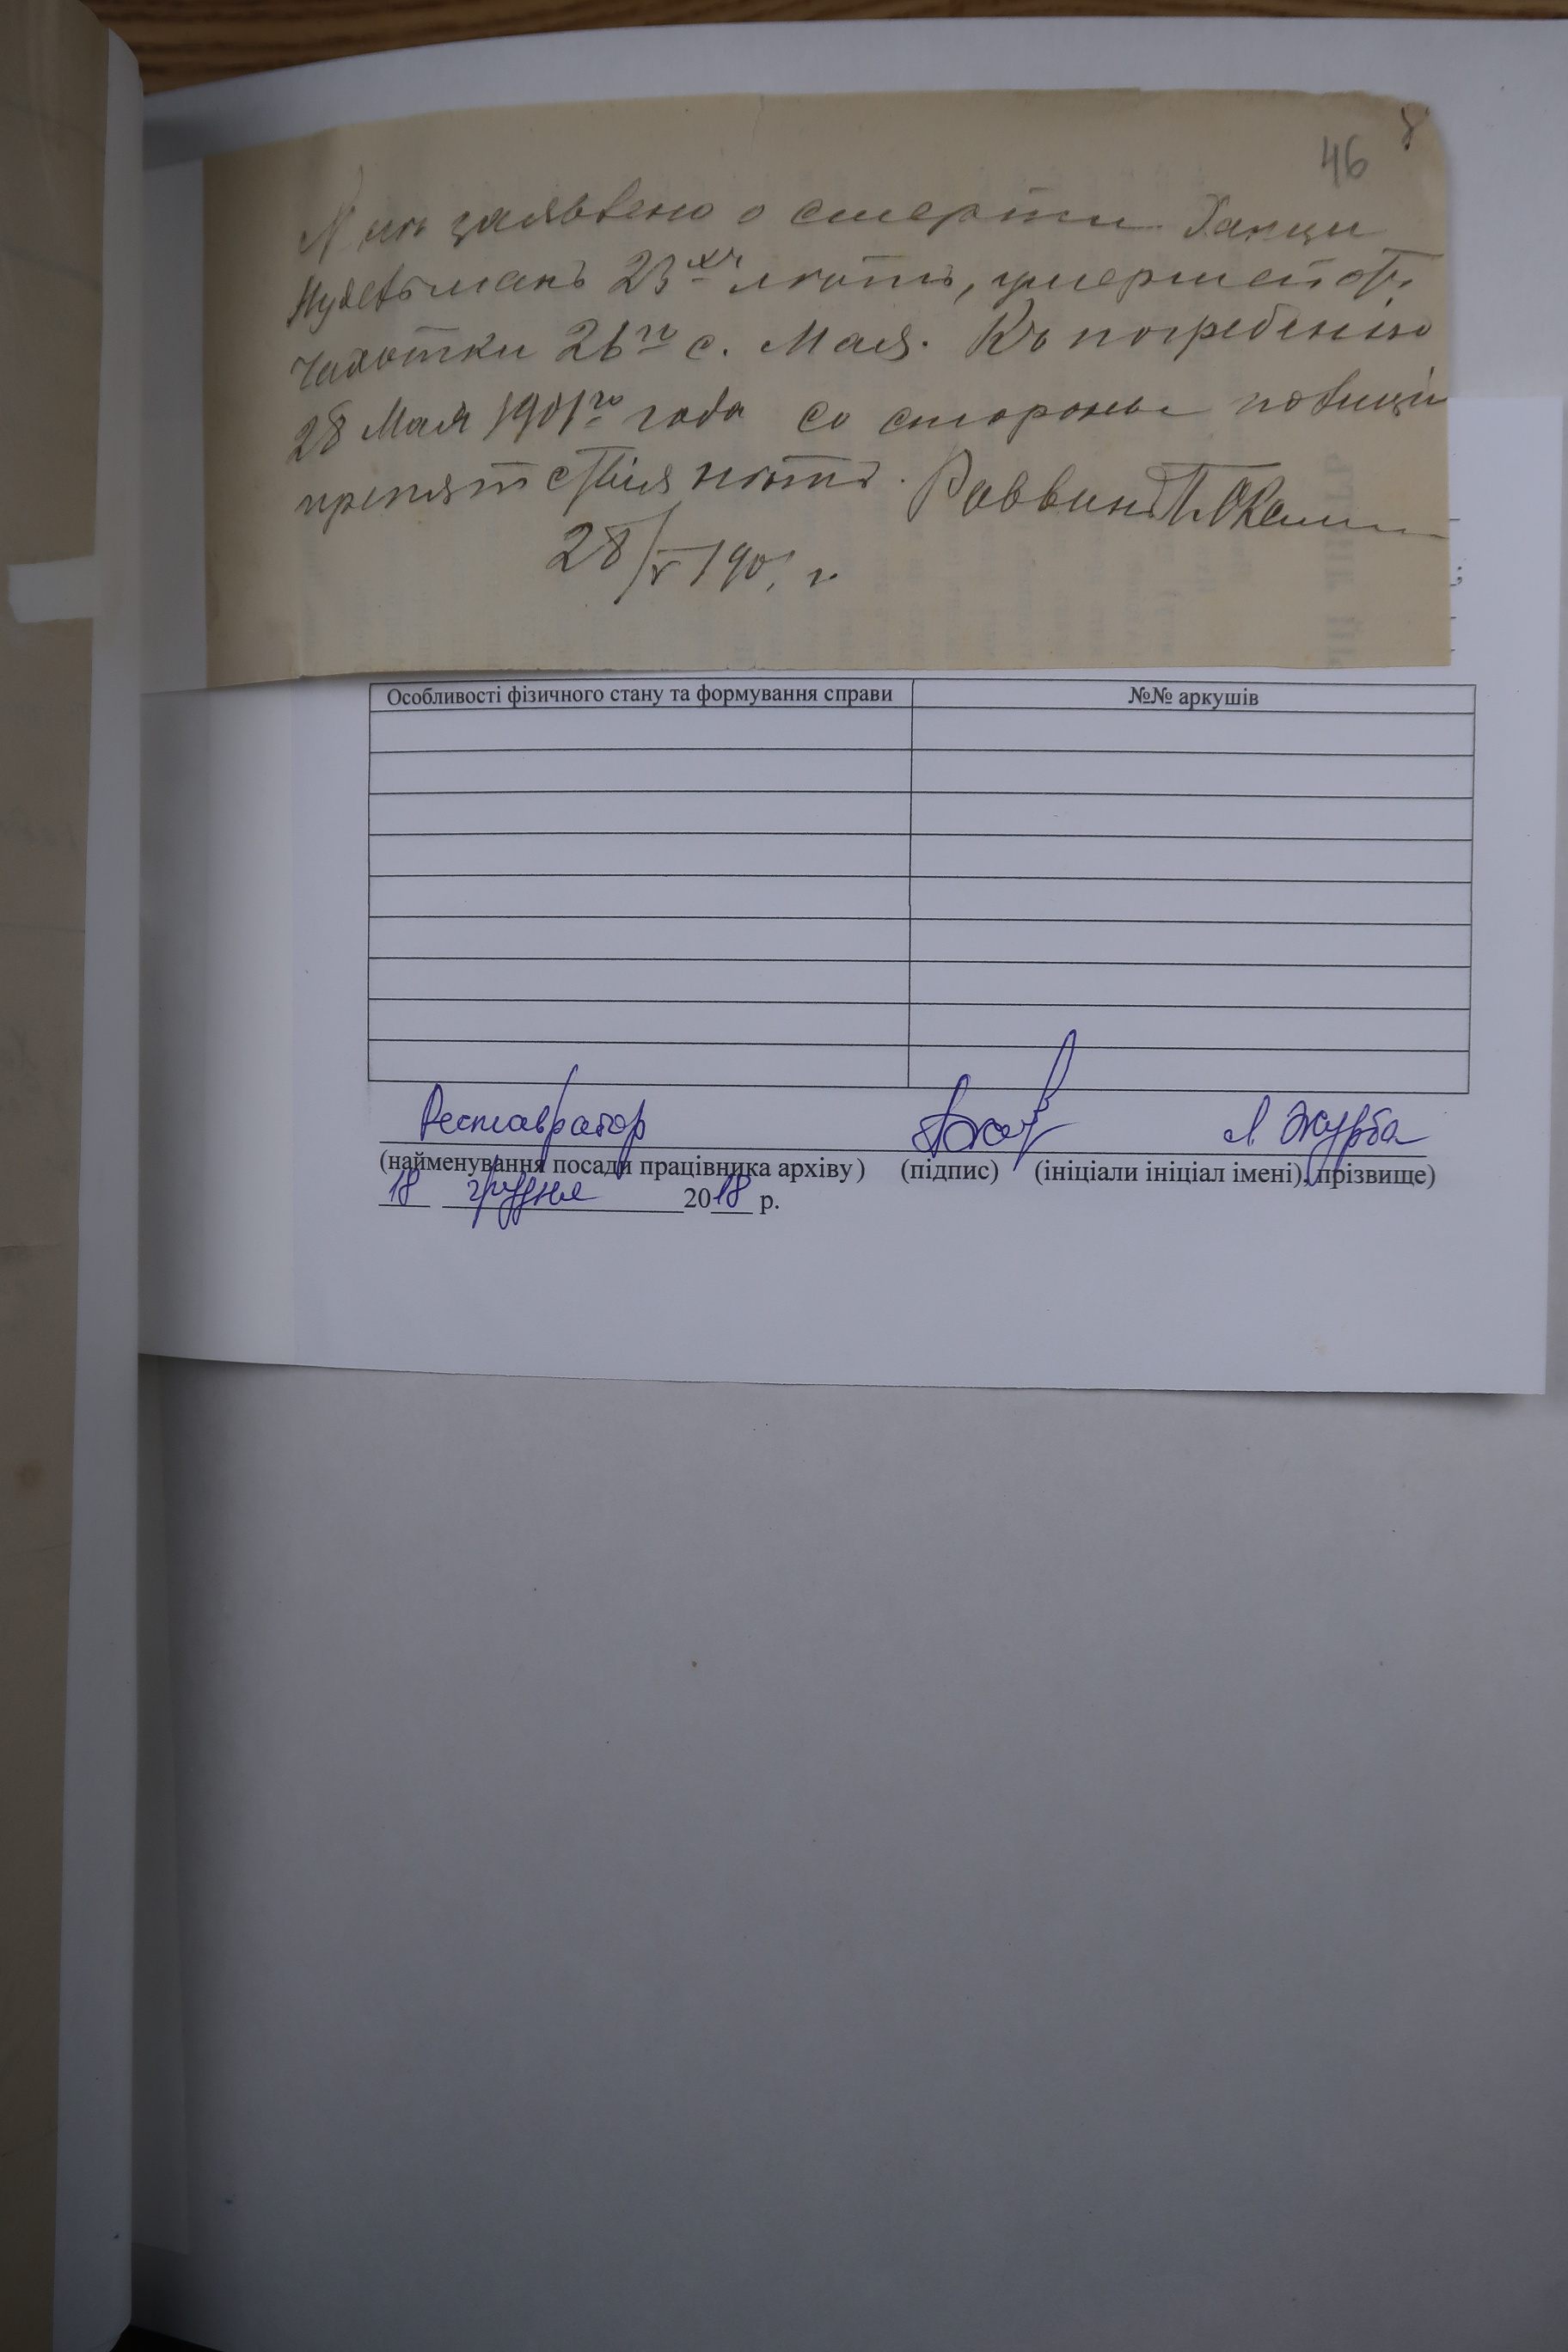 8
46
Мнѣ заявлено о смерти Ханци
Нудельманъ 23хъ лѣтъ, умершей отъ
чахотки 26го с. Мая. Къ погребенію
28 Мая 1901го года со стороны полиціи
препятствія нѣтъ. Раввинъ
28/V 1901 г.
Особливості фізичного стану та формування справи
№№ аркушів
Реставратор Л Журба
(найменування посади працівника архіву) (підпис) (ініціали ініціал імені), прізвище)
18 грудня 2018 р.